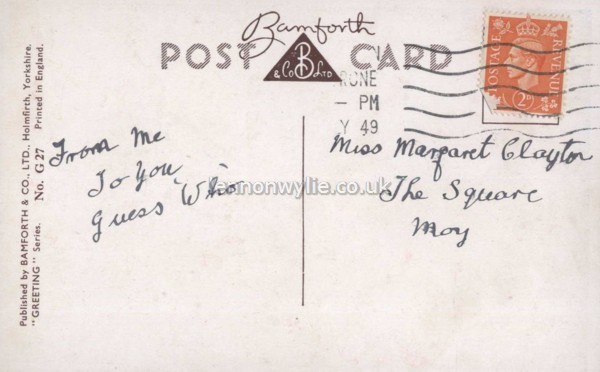 Bamforth
POST CARD
& Co B LTD
RONE
- PM
Y 49
POSTAGE
REVENUE
2D
Published by BAMFORTH & CO., LTD., Holmfirth, Yorkshire.
"GREETING" Series. No. G 27 Printed in England.
From Me
To You
Guess Who
lennonwylie.co.uk
Miss Margaret Clayton
The Square
Moy